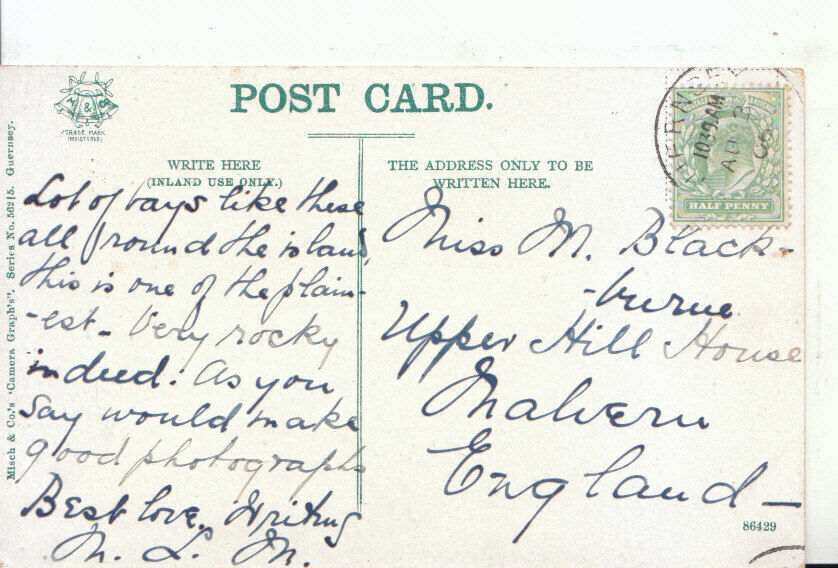 POST CARD.
M & Co
TRADE MARK
(REGISTERED)
WRITE HERE
(INLAND USE ONLY.)
THE ADDRESS ONLY TO BE
WRITTEN HERE.
Misch & Co.'s "Camera Graph's". Series No. 562/5. Guernsey.
Lot of bays like these
all round the island,
this is one of the plain-
-est - Very rocky
indeed. As you
say would make
good photographs
Best love. Writing
M. L. M.
Miss M. Black-
-burne
Upper Hill House
Malvern
England
10 30 AM
AU
06
HALF PENNY
86429